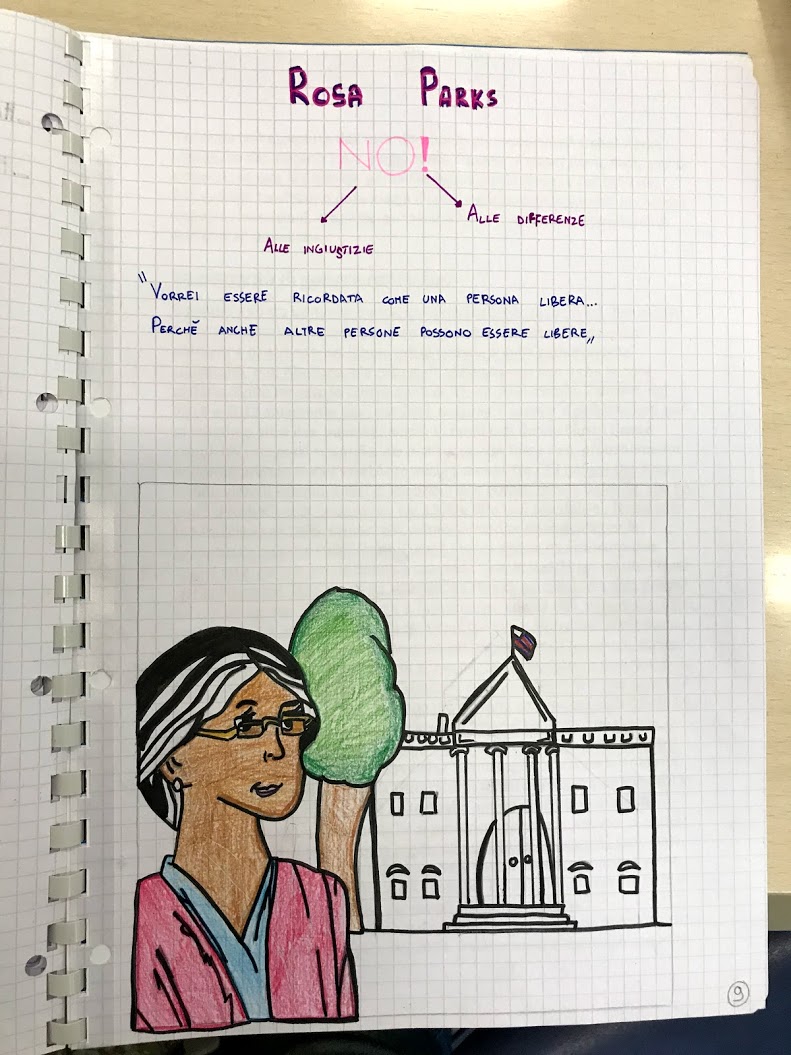 ROSA PARKS
NO!
ALLE DIFFERENZE
ALLE INGIUSTIZIE
"VORREI ESSERE RICORDATA COME UNA PERSONA LIBERA...
PERCHĚ ANCHE ALTRE PERSONE POSSONO ESSERE LIBERE"
9